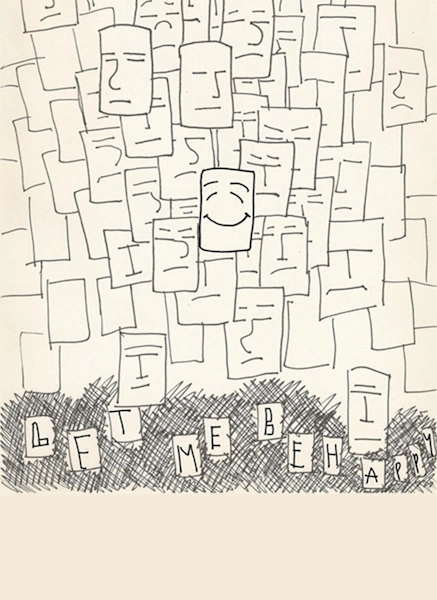 LET ME BE HAPPY